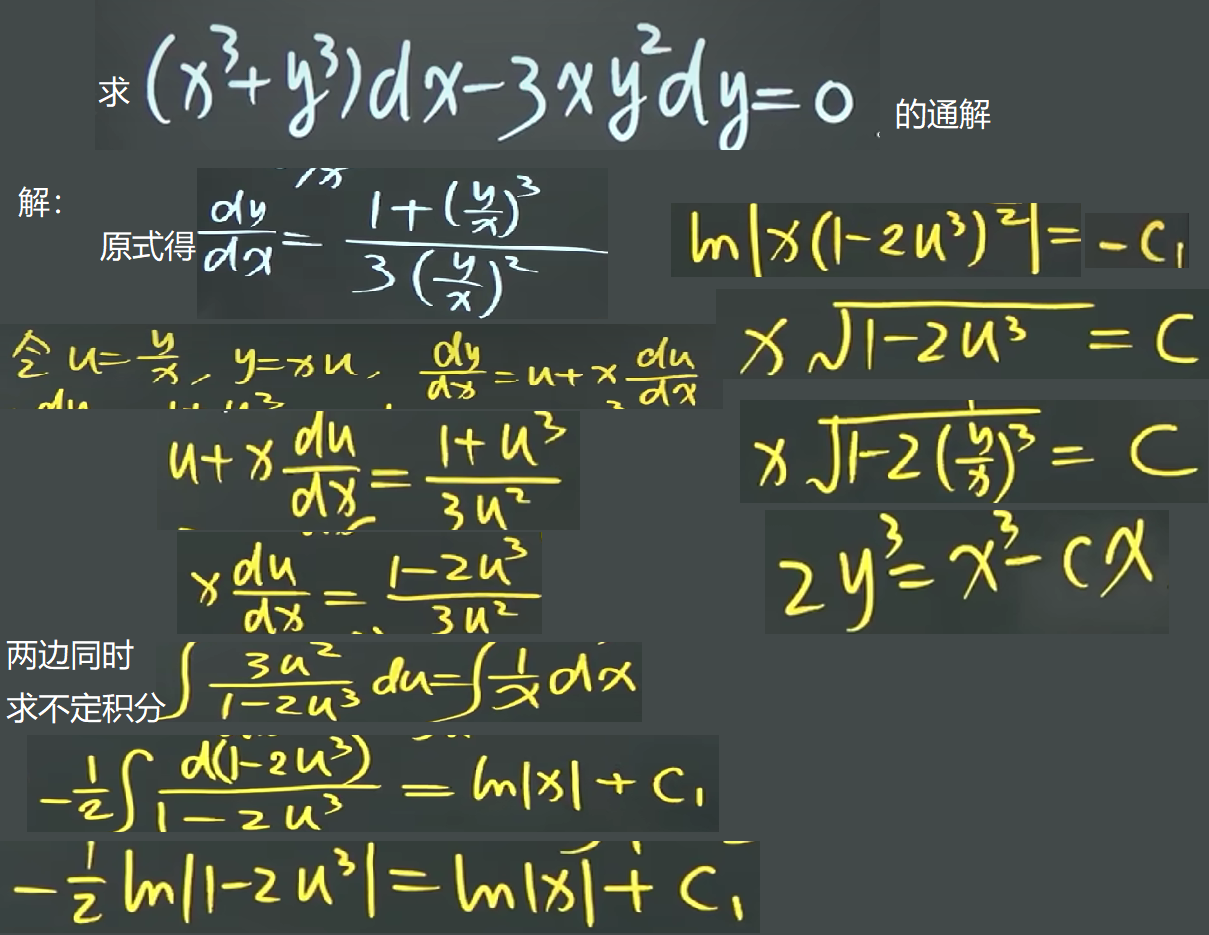 求 (x³+y³)dx-3xy²dy=0 的通解
解：
原式得 dy/dx = (1+(y/x)³)/(3(y/x)²)
令 u=y/x, y=xu, dy/dx=u+x du/dx
u+x du/dx = (1+u³)/(3u²)
x du/dx = (1-2u³)/(3u²)
两边同时
求不定积分 ∫ 3u²/(1-2u³) du=∫ 1/x dx
-1/2 ∫ d(1-2u³)/(1-2u³) = ln|x|+C₁
-1/2 ln|1-2u³|=ln|x|+C₁
ln|x(1-2u³)²|=-C₁
x√(1-2u³) = C
x√(1-2(y/x)³) = C
2y³=x³-Cx